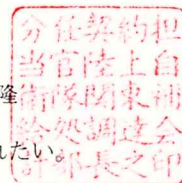 分任契約担
当官陸上自
衛隊関東補
給処調達会
計部長之印
隆
れたい。